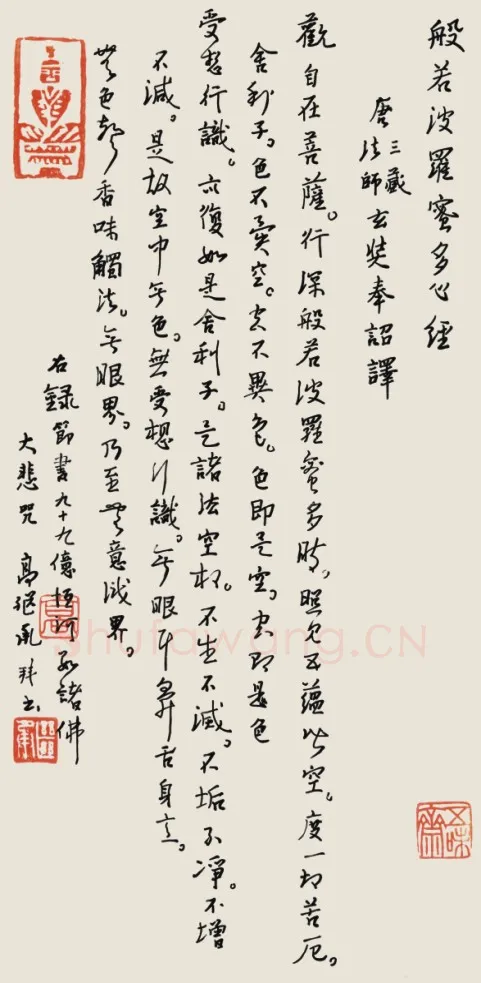 般若波羅蜜多心經
唐三藏法師玄奘奉詔譯
觀自在菩薩。行深般若波羅蜜多時。照見五蘊皆空。度一切苦厄。
舍利子。色不異空。空不異色。色即是空。空即是色
受想行識。亦復如是舍利子。是諸法空相。不生不滅。不垢不淨。不增
不減。是故空中無色。無受想行識。無眼耳鼻舌身意。
無色聲香味觸法。無眼界。乃至無意識界。
右錄節書九十九億恆河沙諸佛
大悲咒 拜書
shufawang.CN